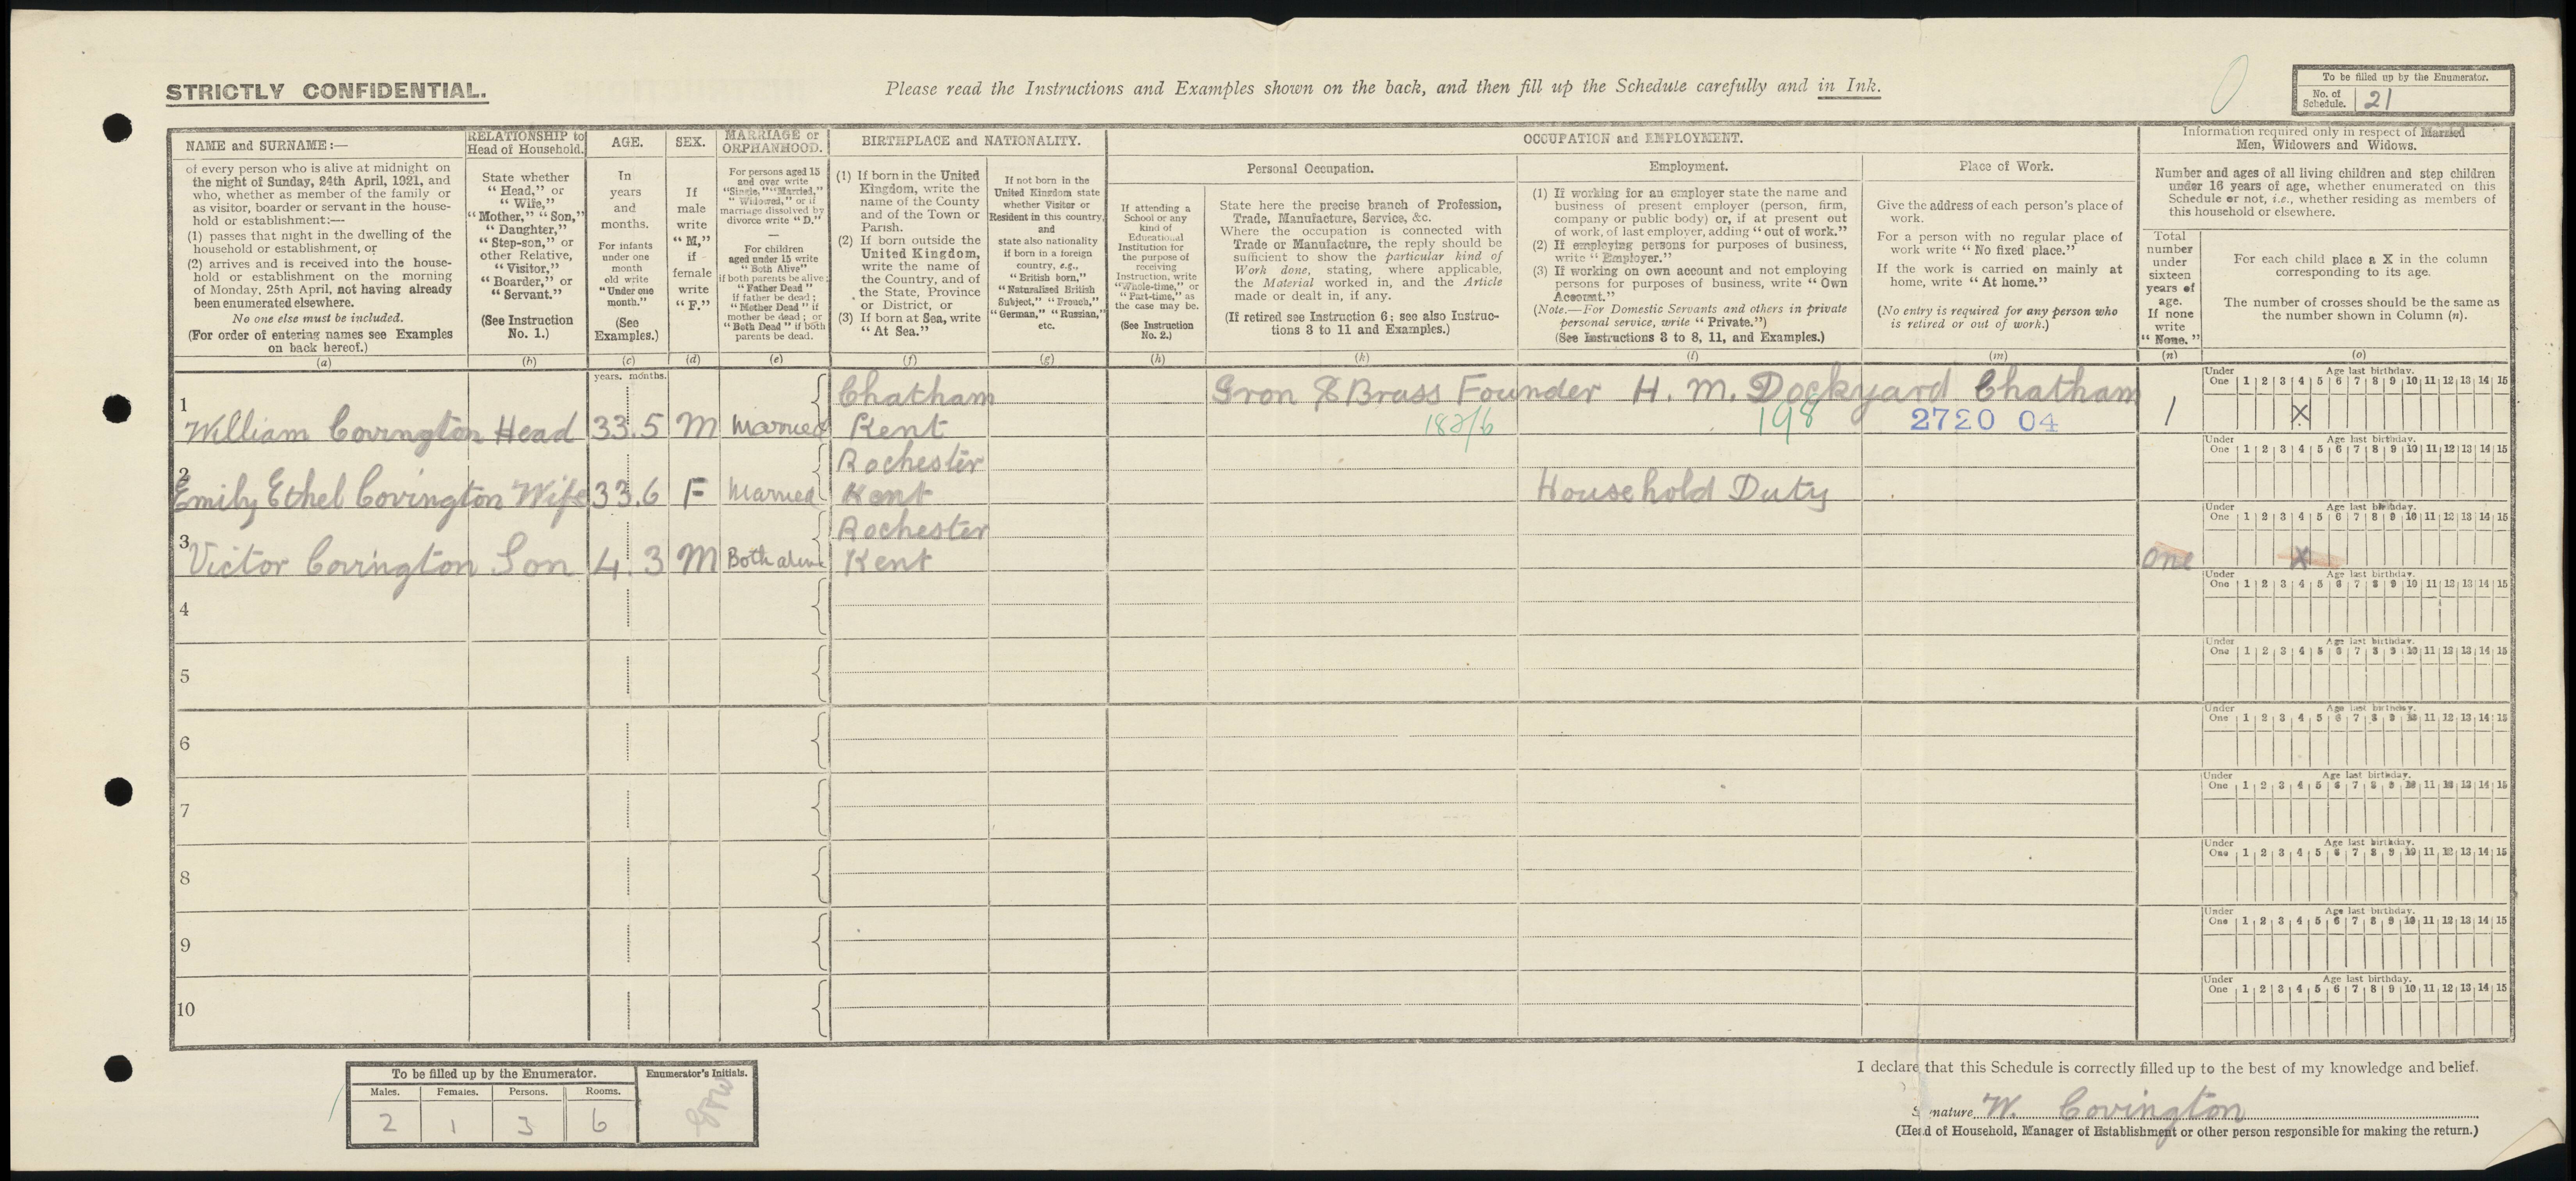 STRICTLY CONFIDENTIAL.
Please read the Instructions and Examples shown on the back, and then fill up the Schedule carefully and in Ink.
To be filled up by the Enumerator.
No. of Schedule. 21
NAME and SURNAME :—
of every person who is alive at midnight on
the night of Sunday, 24th April, 1921, and
who, whether as member of the family or
as visitor, boarder or servant in the house-
hold or establishment :—
(1) passes that night in the dwelling of the
household or establishment, or
(2) arrives and is received into the house-
hold or establishment on the morning
of Monday, 25th April, not having already
been enumerated elsewhere.
No one else must be included.
(For order of entering names see Examples
on back hereof.)
(a)
RELATIONSHIP to
Head of Household.
State whether
"Head," or
"Wife,"
"Mother," "Son,"
"Daughter,"
"Step-son," or
other Relative,
"Visitor,"
"Boarder," or
"Servant."
(See Instruction
No. 1.)
(b)
AGE.
In
years
and
months.
For infants
under one
month
old write
"Under one
month."
(See
Examples.)
(c)
SEX.
If
male
write
"M,"
if
female
write
"F."
(d)
MARRIAGE or
ORPHANHOOD.
For persons aged 15
and over write
"Single," "Married,"
"Widowed," or if
marriage dissolved by
divorce write "D."
—
For children
aged under 15 write
"Both Alive"
if both parents be alive;
"Father Dead"
if father be dead;
"Mother Dead" if
mother be dead; or
"Both Dead" if both
parents be dead.
(e)
BIRTHPLACE and NATIONALITY.
(1) If born in the United
Kingdom, write the
name of the County
and of the Town or
Parish.
(2) If born outside the
United Kingdom,
write the name of
the Country, and of
the State, Province
or District, or
(3) If born at Sea, write
"At Sea."
(f)
If not born in the
United Kingdom state
whether Visitor or
Resident in this country,
and
state also nationality
if born in a foreign
country, e.g.,
"British born,"
"Naturalized British
Subject," "French,"
"German," "Russian,"
etc.
(g)
OCCUPATION and EMPLOYMENT.
If attending a
School or any
kind of
Educational
Institution for
the purpose of
receiving
Instruction, write
"Whole-time," or
"Part-time," as
the case may be.
(See Instruction
No. 2.)
(h)
Personal Occupation.
State here the precise branch of Profession,
Trade, Manufacture, Service, &c.
Where the occupation is connected with
Trade or Manufacture, the reply should be
sufficient to show the particular kind of
Work done, stating, where applicable,
the Material worked in, and the Article
made or dealt in, if any.
(If retired see Instruction 6; see also Instruc-
tions 3 to 11 and Examples.)
(k)
Employment.
(1) If working for an employer state the name and
business of present employer (person, firm,
company or public body) or, if at present out
of work, of last employer, adding "out of work."
(2) If employing persons for purposes of business,
write "Employer."
(3) If working on own account and not employing
persons for purposes of business, write "Own
Account."
(Note.—For Domestic Servants and others in private
personal service, write "Private.")
(See Instructions 3 to 8, 11, and Examples.)
(l)
Place of Work.
Give the address of each person's place of
work.
For a person with no regular place of
work write "No fixed place."
If the work is carried on mainly at
home, write "At home."
(No entry is required for any person who
is retired or out of work.)
(m)
Information required only in respect of Married
Men, Widowers and Widows.
Number and ages of all living children and step children
under 16 years of age, whether enumerated on this
Schedule or not, i.e., whether residing as members of
this household or elsewhere.
Total
number
under
sixteen
years of
age.
If none
write
"None."
(n)
For each child place a X in the column
corresponding to its age.
The number of crosses should be the same as
the number shown in Column (n).
(o)
years. months.
1
William Covington Head 33.5 M Married Chatham
Kent
Iron & Brass Founder H. M. Dockyard Chatham
182/6 198 2720 04
1
Under One Age last birthday. 1 2 3 4 5 6 7 8 9 10 11 12 13 14 15
X
2
Emily Ethel Covington Wife 33.6 F Married Rochester
Kent
Household Duty
Under One Age last birthday. 1 2 3 4 5 6 7 8 9 10 11 12 13 14 15
3
Victor Covington Son 4.3 M Both alive Rochester
Kent
One
Under One Age last birthday. 1 2 3 4 5 6 7 8 9 10 11 12 13 14 15
X
4
Under One Age last birthday. 1 2 3 4 5 6 7 8 9 10 11 12 13 14 15
5
Under One Age last birthday. 1 2 3 4 5 6 7 8 9 10 11 12 13 14 15
6
Under One Age last birthday. 1 2 3 4 5 6 7 8 9 10 11 12 13 14 15
7
Under One Age last birthday. 1 2 3 4 5 6 7 8 9 10 11 12 13 14 15
8
Under One Age last birthday. 1 2 3 4 5 6 7 8 9 10 11 12 13 14 15
9
Under One Age last birthday. 1 2 3 4 5 6 7 8 9 10 11 12 13 14 15
10
Under One Age last birthday. 1 2 3 4 5 6 7 8 9 10 11 12 13 14 15
To be filled up by the Enumerator.
Males. Females. Persons. Rooms.
2 1 3 6
Enumerator's Initials.
I declare that this Schedule is correctly filled up to the best of my knowledge and belief.
Signature W. Covington
(Head of Household, Manager of Establishment or other person responsible for making the return.)